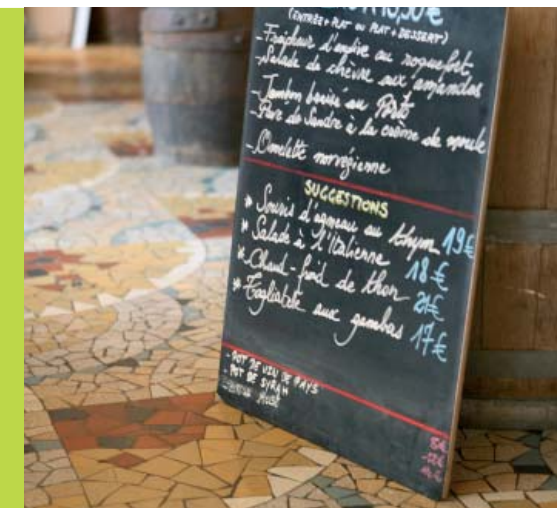 10,50€
(ENTRÉE + PLAT OU PLAT + DESSERT)
- Fraîcheur d'endive au roquefort
- Salade de chèvre aux amandes
- Jambon braisé au Porto
- Pavé de Sandre à la crème de moule
- Omelette norvégienne
SUGGESTIONS
* Souris d'agneau au thym 19€
* Salade à l'Italienne 18€
* Chaud-froid de thon 21€
* Tagliatelle aux gambas 17€
- POT DE VIN DE PAYS
- POT DE SYRAH